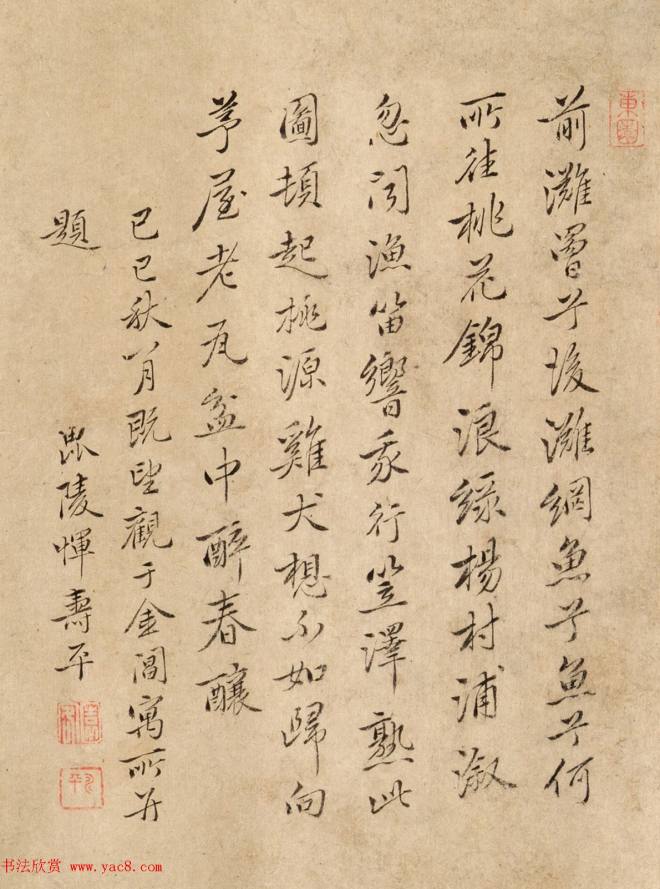 東園
前灘罾兮後灘網魚兮魚兮何
所往桃花錦浪綠楊村浦溆
忽聞漁笛響我行笠澤熟此
圖頓起桃源雞犬想不如歸向
茅屋老瓦盆中醉春釀
己巳秋八月既望觀于金閶寓所并
題
毗陵惲壽平
書法欣賞 www.yac8.com